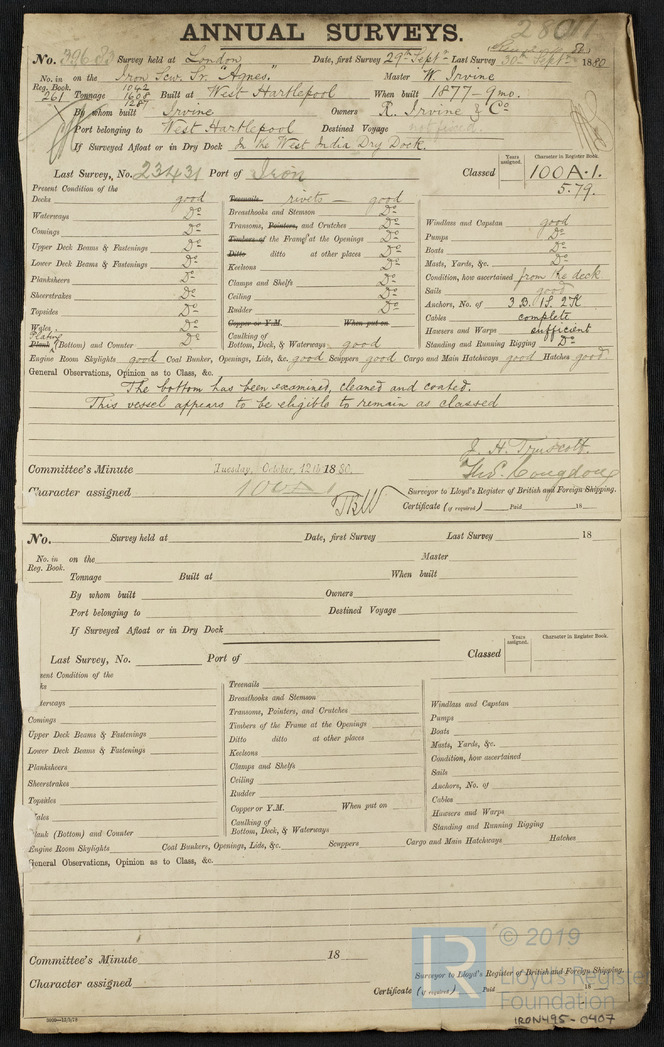 ANNUAL SURVEYS.
280
No. 39683 Survey held at London Date, first Survey 29th Septr Last Survey 30th Septr 1880
No. in on the Iron Scw. Sr. "Agnes." Master W. Irvine
Reg. Book. 1042
261 Tonnage 1608 Built at West Hartlepool When built 1877-9mo.
1287
By whom built Irvine Owners R. Irvine & Co
Port belonging to West Hartlepool Destined Voyage not fixed
If Surveyed Afloat or in Dry Dock In the West India Dry Dock.
Last Survey, No. 23431 Port of Iron Classed
Years assigned.
Character in Register Book.
100A.1.
5.79.
Present Condition of the
Decks good
Waterways Do
Comings Do
Upper Deck Beams & Fastenings Do
Lower Deck Beams & Fastenings Do
Planksheers Do
Sheerstrakes Do
Topsides Do
Wales Do
Plating
Plank (Bottom) and Counter Do
Treenails rivets — good
Breasthooks and Stemson Do
Transoms, Pointers, and Crutches Do
Timbers of the Frame at the Openings Do
Ditto ditto at other places Do
Keelsons Do
Clamps and Shelfs Do
Ceiling Do
Rudder Do
Copper or Y.M. When put on
Caulking of
Bottom, Deck, & Waterways good
Windlass and Capstan good
Pumps Do
Boats Do
Masts, Yards, &c. Do
Condition, how ascertained from the deck
Sails good
Anchors, No. of 3 B. 1S. 2K
Cables complete
Hawsers and Warps sufficient
Standing and Running Rigging Do
Engine Room Skylights good Coal Bunker, Openings, Lids, &c. good Scuppers good Cargo and Main Hatchways good Hatches good.
General Observations, Opinion as to Class, &c.
The bottom has been examined, cleaned and coated.
This vessel appears to be eligible to remain as classed
J. H. Truscott.
Thos. Congdon
Committee's Minute Tuesday, October, 12th 1880.
Character assigned 100A1
Surveyor to Lloyd's Register of British and Foreign Shipping.
Certificate (if required) Paid 18
No. Survey held at Date, first Survey Last Survey 18
No. in on the Master
Reg. Book.
Tonnage Built at When built
By whom built Owners
Port belonging to Destined Voyage
If Surveyed Afloat or in Dry Dock
Last Survey, No. Port of Classed
Years assigned.
Character in Register Book.
sent Condition of the
ks
terways
Comings
Upper Deck Beams & Fastenings
Lower Deck Beams & Fastenings
Planksheers
Sheerstrakes
Topsides
ales
lank (Bottom) and Counter
Treenails
Breasthooks and Stemson
Transoms, Pointers, and Crutches
Timbers of the Frame at the Openings
Ditto ditto at other places
Keelsons
Clamps and Shelfs
Ceiling
Rudder
Copper or Y.M. When put on
Caulking of
Bottom, Deck, & Waterways
Windlass and Capstan
Pumps
Boats
Masts, Yards, &c.
Condition, how ascertained
Sails
Anchors, No. of
Cables
Hawsers and Warps
Standing and Running Rigging
Engine Room Skylights Coal Bunkers, Openings, Lids, &c. Scuppers Cargo and Main Hatchways Hatches
General Observations, Opinion as to Class, &c.
Committee's Minute 18
Character assigned
Surveyor to Lloyd's Register of British and Foreign Shipping.
Certificate (if required) Paid 18
LR © 2019
Lloyd's Register
Foundation
IRON495-0407